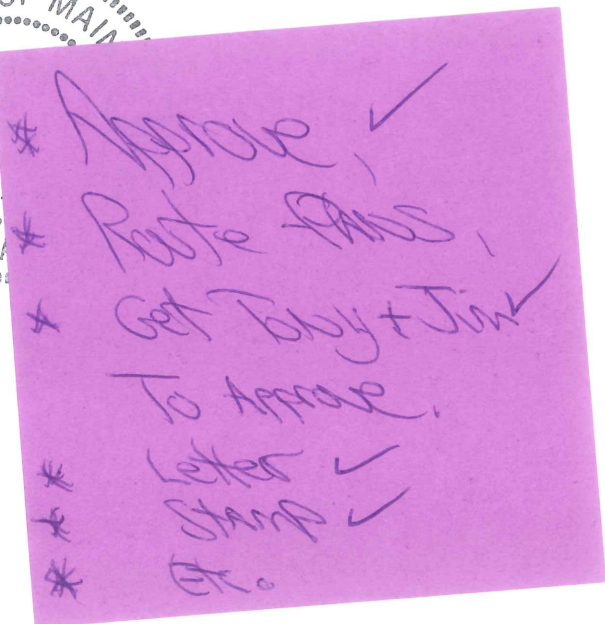 OF MAIN
* Approve ✓
* Route Plans,
* Get Tony + Jim ✓
To Approve.
* Letter ✓
* Stamp ✓
* Etc.